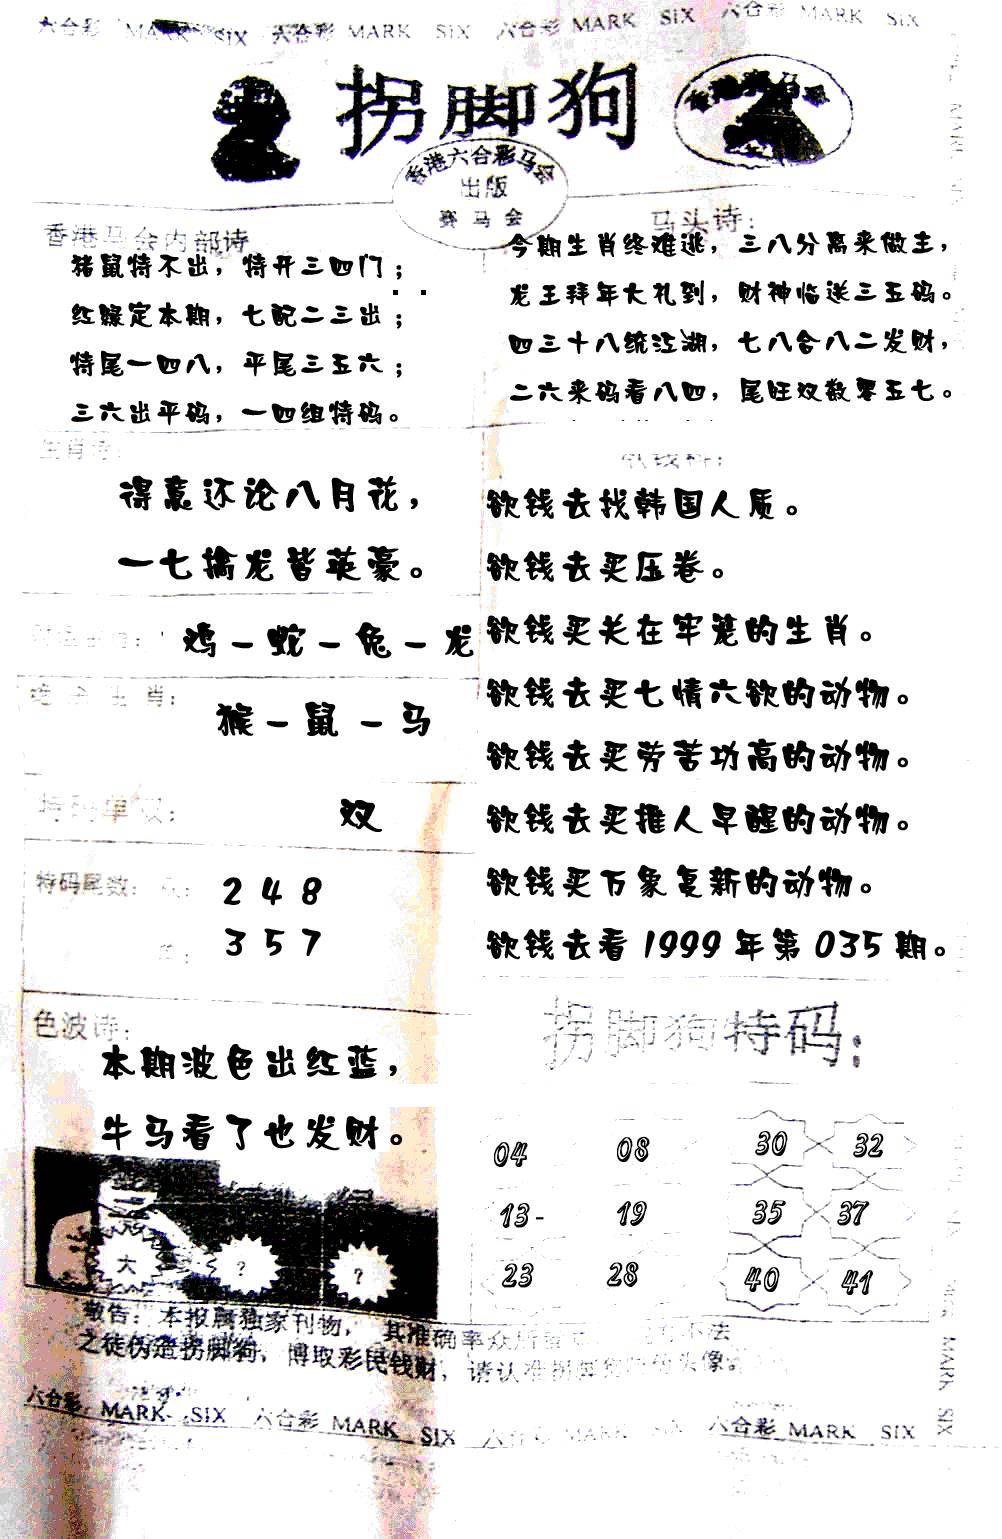 六合彩 MARK SIX 六合彩 MARK SIX 六合彩 MARK SIX 六合彩 MARK SIX
拐脚狗
香港六合彩马会
出版
赛马会
香港马会内部诗
猪鼠特不出，特开三四门；
红绿定本期，七配二三出；
特尾一四八，平尾三五六；
三六出平码，一四组特码。
马头诗：
今期生肖终难逃，三八分离来做主，
龙王拜年大礼到，财神临送三五码。
四三十八统江湖，七八合八二发财，
二六来码看八四，尾旺双数零五七。
生肖诗：
得意还论八月花，
一七擒龙皆英豪。
鸡－蛇－兔－龙
生肖：
猴－鼠－马
特码单双：
双
特码尾数：
2 4 8
3 5 7
色波诗：
本期波色出红蓝，
牛马看了也发财。
欲钱去找韩国人质。
欲钱去买压卷。
欲钱买关在牢笼的生肖。
欲钱去买七情六欲的动物。
欲钱去买劳苦功高的动物。
欲钱去买推人早醒的动物。
欲钱买万象复新的动物。
欲钱去看1999年第035期。
拐脚狗特码：
04 08 30 32
13- 19 35 37
23 28 40 41
大 ? ?
敬告：本报属独家刊物，其准确率众所 不法
之徒伪造拐脚狗，博取彩民钱财，请认准拐脚 头像。
六合彩 MARK SIX 六合彩 MARK SIX 六合彩 MARK SIX 六合彩 MARK SIX
MARK
MARK SIX